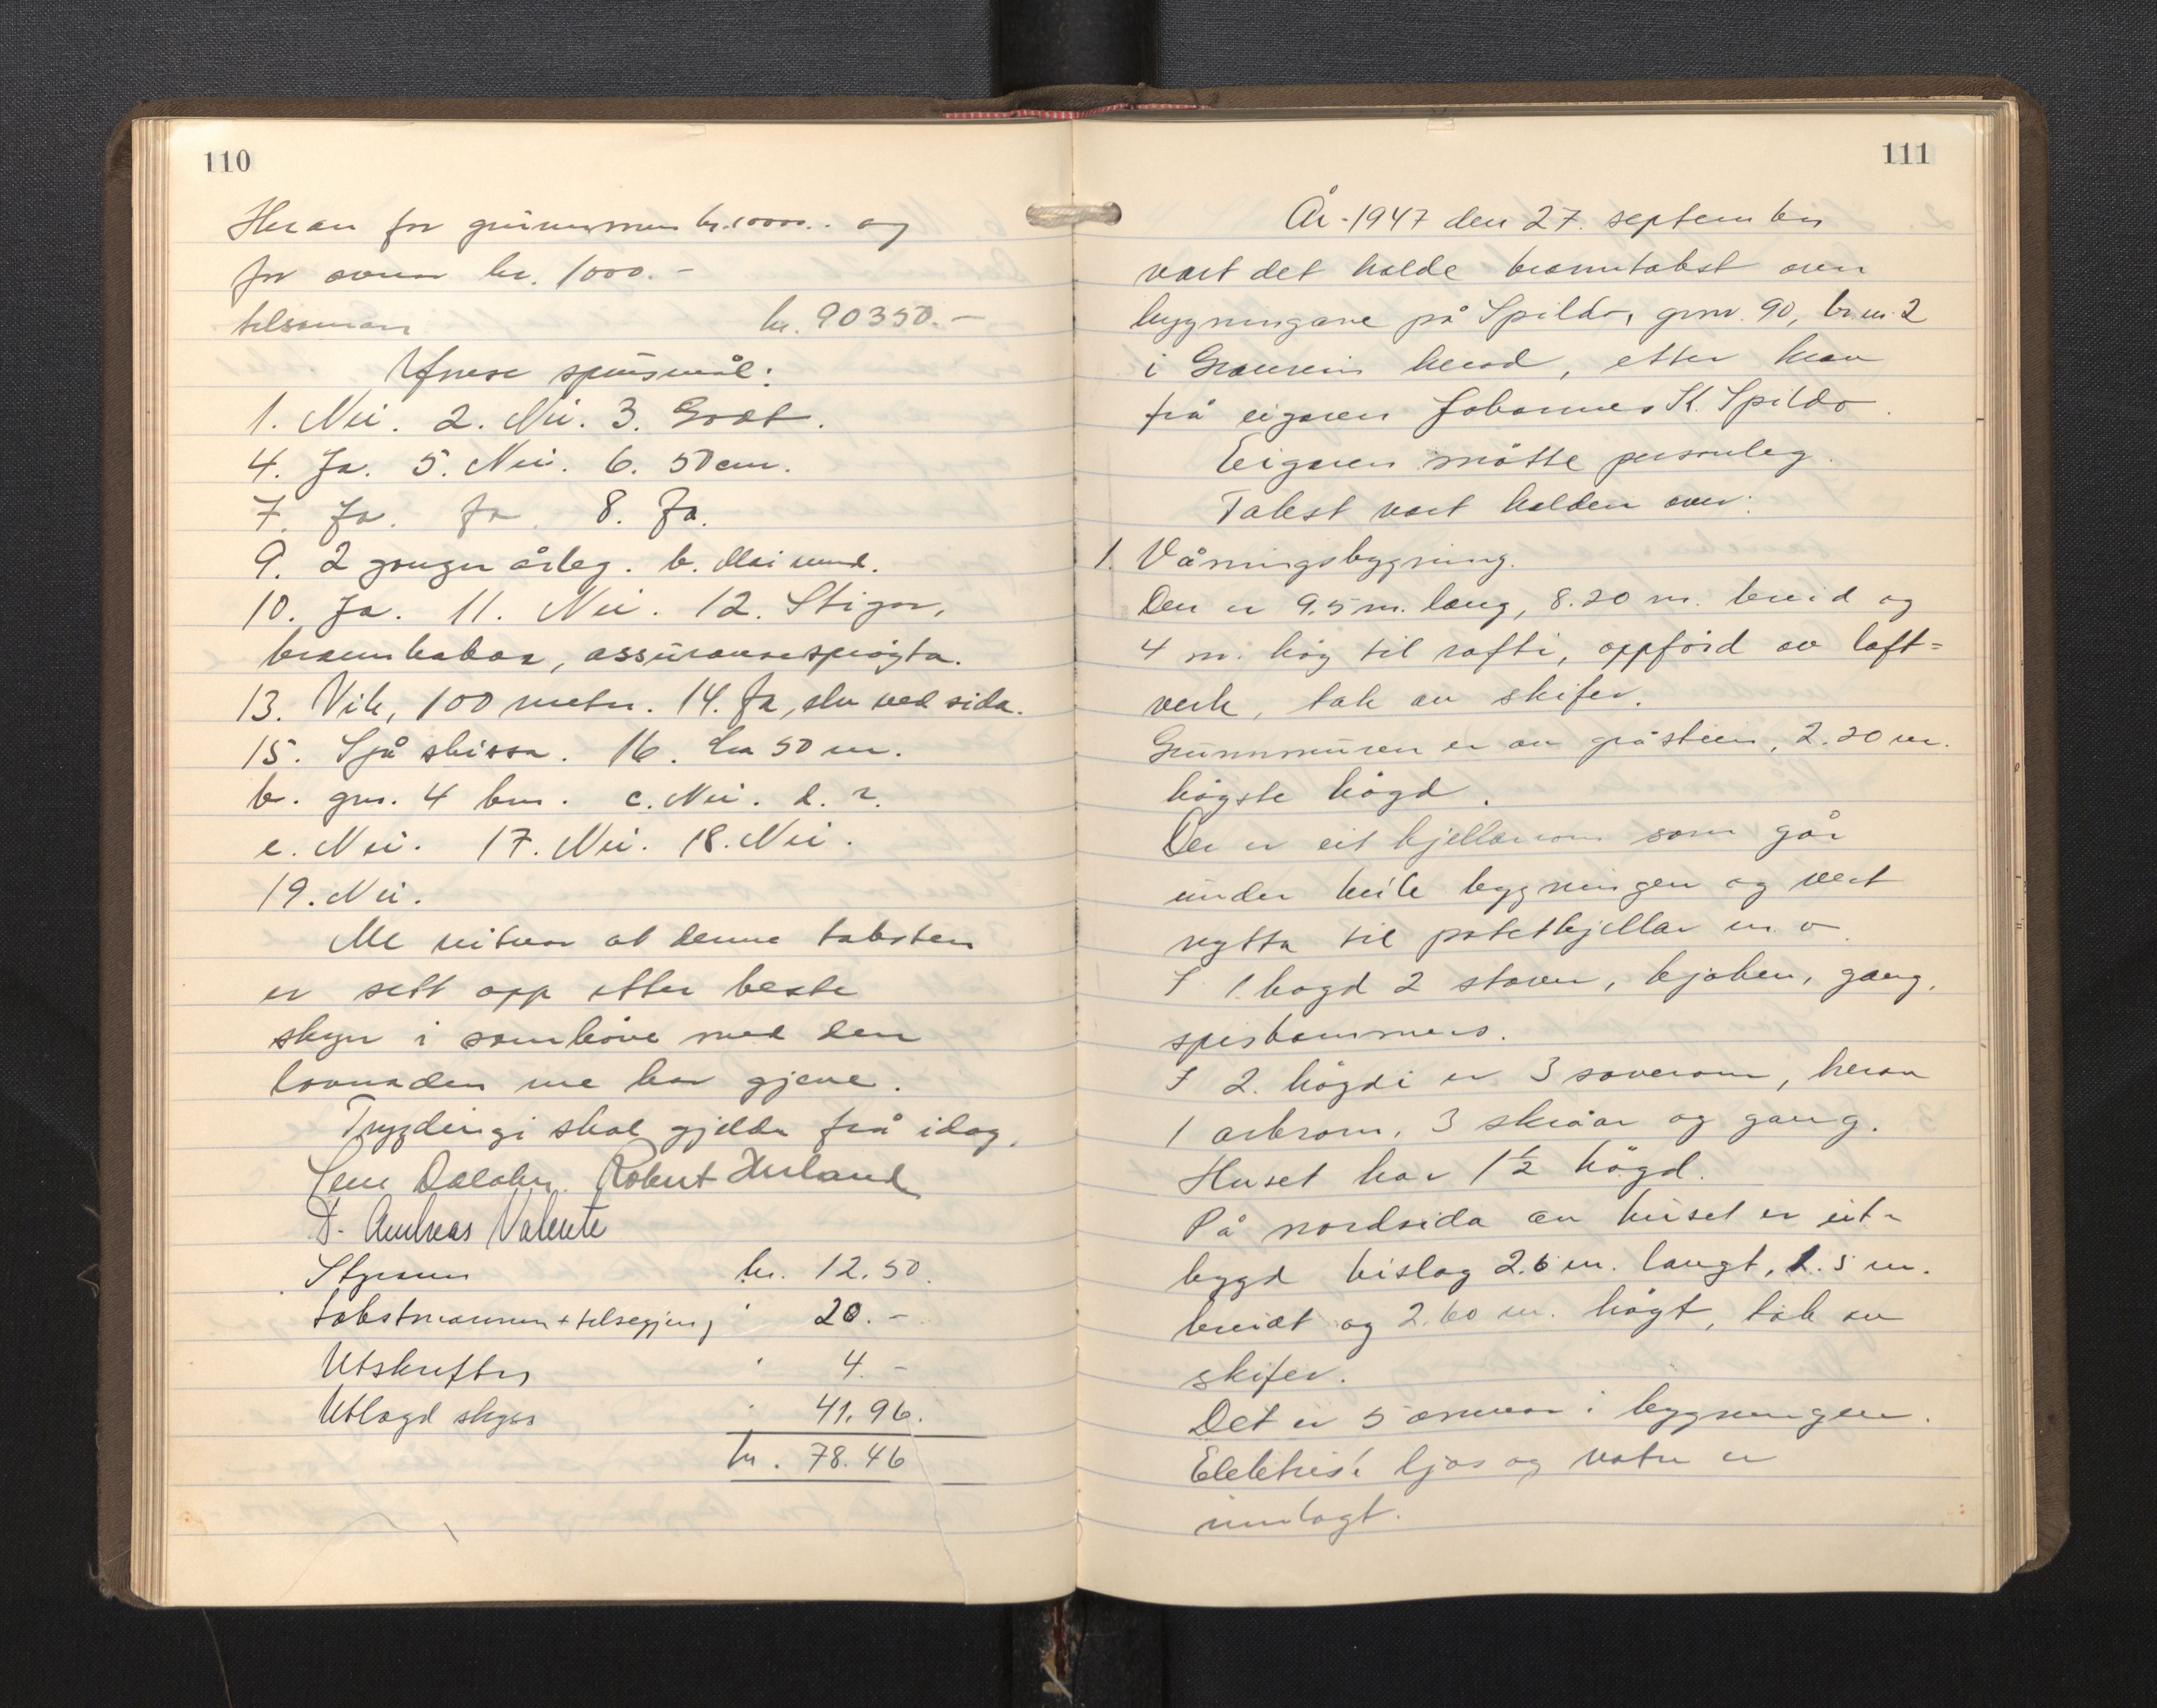 110
Herav for grunnmur kr. 10000.- og
for ovnar kr. 1000.-
tilsaman kr. 90350.-
Ymse spursmål:
1. Nei. 2. Nei. 3. Godt.
4. Ja. 5. Nei. 6. 50 cm.
7. Ja. Ja. 8. Ja.
9. 2 gonger årleg. b.
10. Ja. 11. Nei. 12. Stigar,
brannhakar, assuransesprøyta.
13. Vik, 100 meter. 14. Ja, elv ved sida.
15. Sjå skissa. 16. ca 50 m.
b. gm. 4 bm. c. Nei. d. ?.
e. Nei. 17. Nei. 18. Nei.
19. Nei.
Me vitnar at denne taksten
er sett opp etter beste
skyn i samhøve med den
lovnaden me har gjeve.
Trygdingi skal gjelda frå idag.
Robert Herland
Andreas Valente
Styraren kr. 12.50.
takstmannen + tilsegjing " 20.-
Utskrifter " 4.-
Utlagd skyss " 41.96.
kr. 78.46
111
År 1947 den 27. september
vart det halde branntakst over
bygningane på Spildo, gnr. 90, br.nr. 2
i Granvin herad, etter krav
frå eigaren Johannes K. Spildo.
Eigaren møtte personleg.
Takst vart halden over:
1. Våningsbygning.
Den er 9.5 m. lang, 8.20 m. breid og
4 m. høg til rafti, oppførd av laft=
verk, tak av skifer.
Grunnmuren er av gråstein, 2.20 m.
høgste høgd.
Der er eit kjellarrom som går
under heile bygningen og vert
nytta til potetkjellar m. v.
I 1. høgd 2 stover, kjøken, gang,
spiskammers.
I 2. høgdi er 3 soverom, herav
1 arkrom, 3 skråar og gang.
Huset har 1½ høgd.
På nordsida av huset er eit
bygd bislag 2.6 m. langt, 1.5 m.
breidt og 2.60 m. høgt, tak av
skifer.
Det er 5 omnar i bygningen.
Elektrisk ljos og vatn er
innlagt.